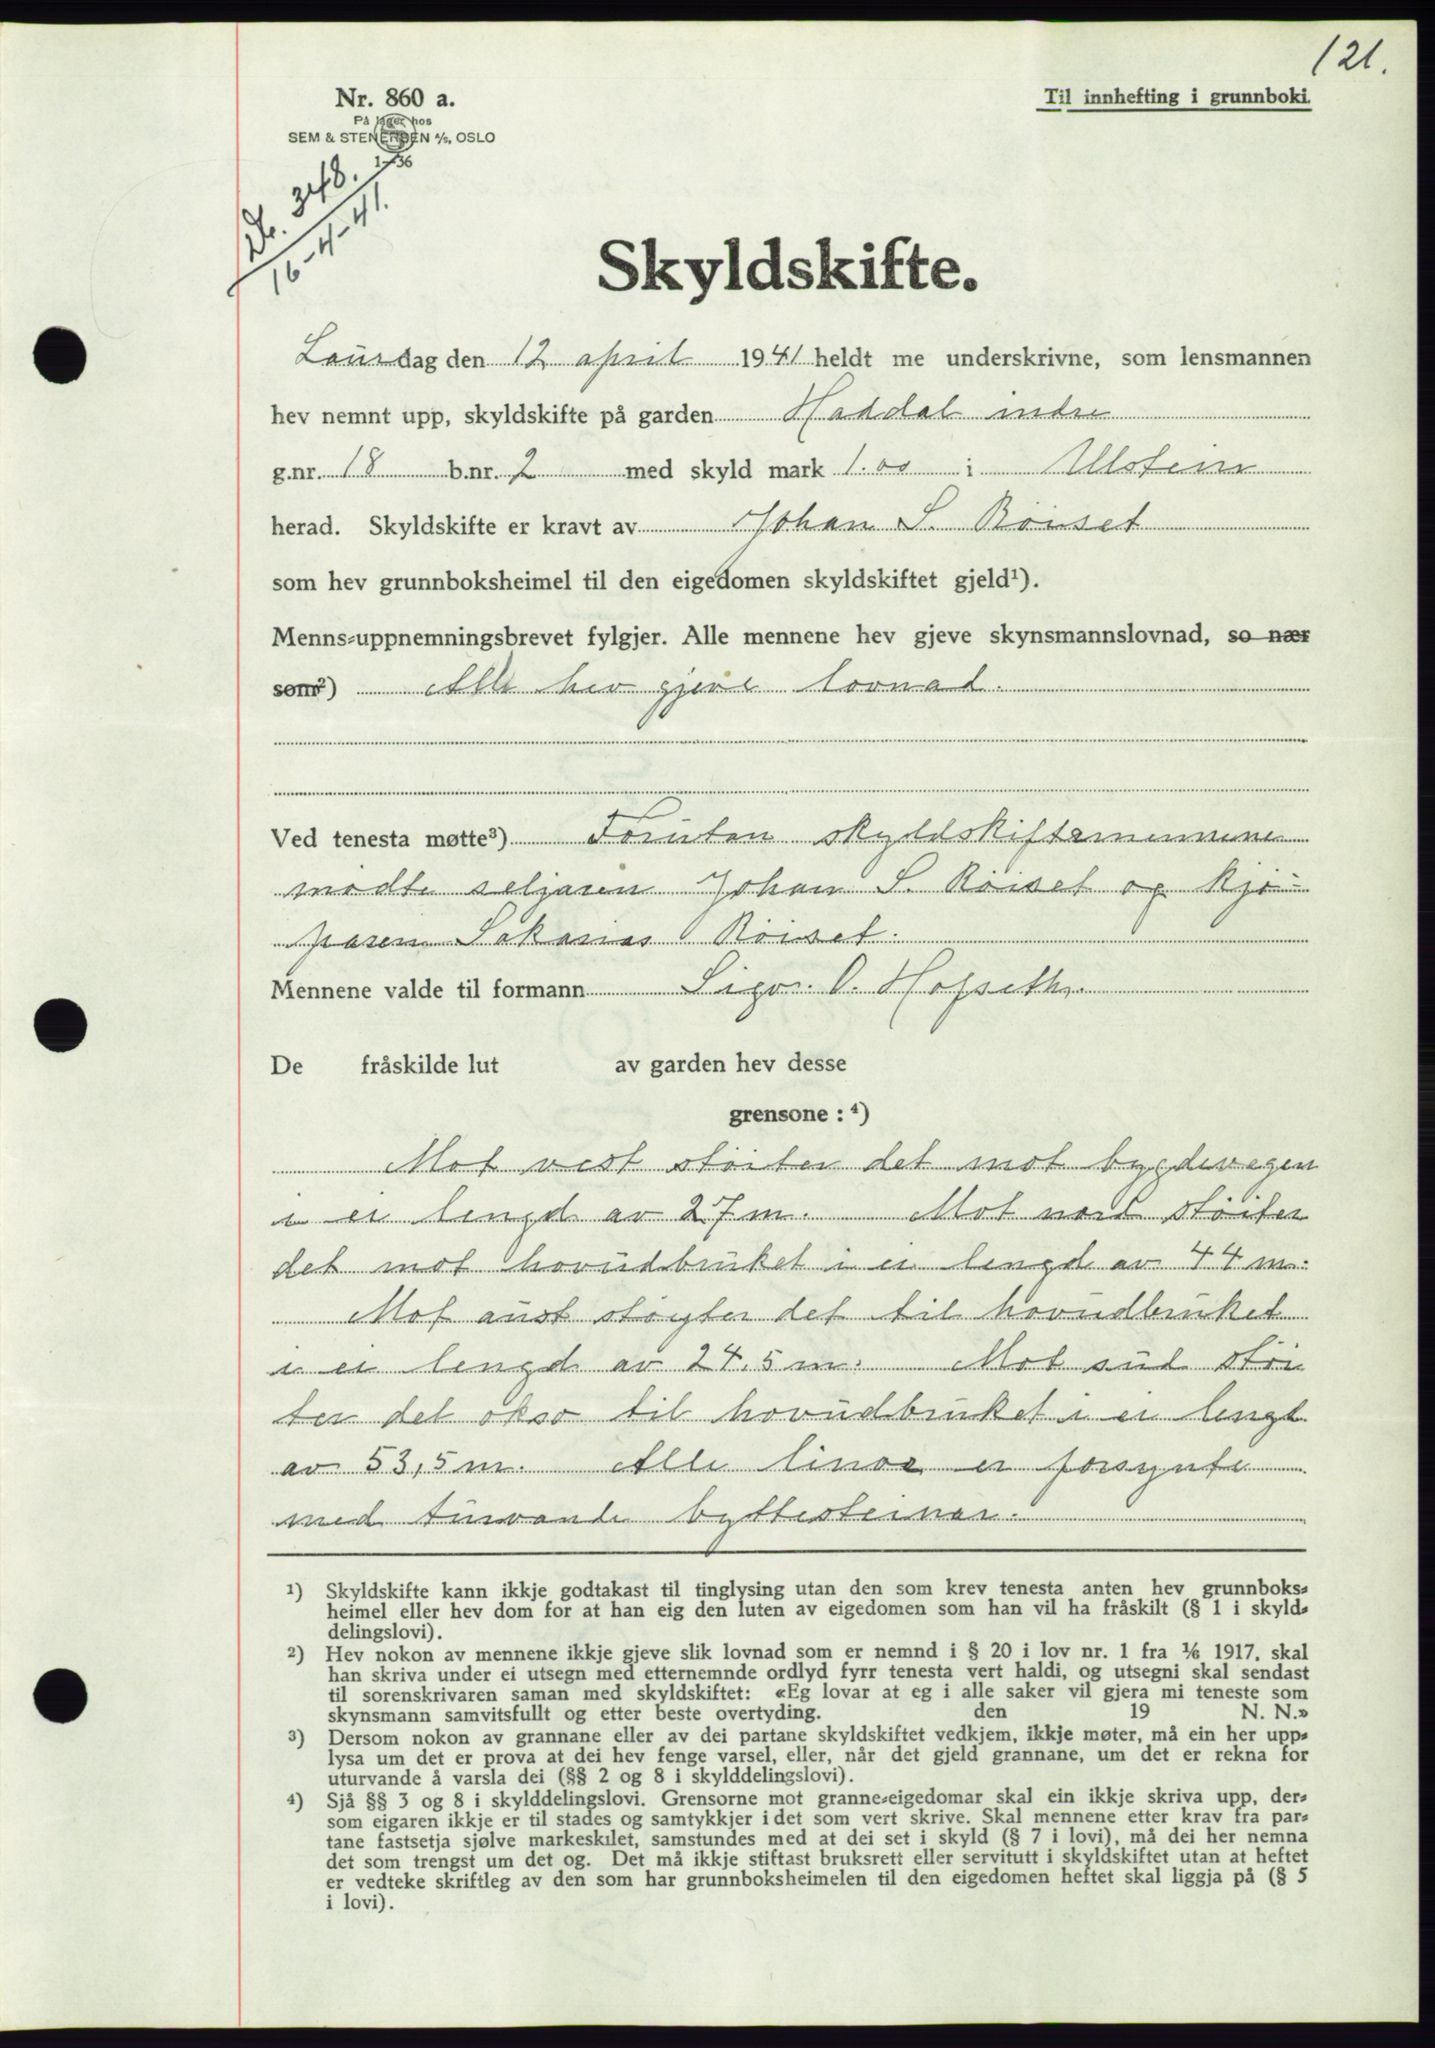 121.
Nr. 860 a.
Til innhefting i grunnboki.
På lager hos
SEM & STENERSEN A/S, OSLO
1—36
Nr. 348.
16-4-41.
Skyldskifte.
Laurdag den 12 april 1941 heldt me underskrivne, som lensmannen
hev nemnt upp, skyldskifte på garden Haddal indre
g.nr. 18 b.nr. 2 med skyld mark 1.00 i Ulstein
herad. Skyldskifte er kravt av Johan S. Röiset
som hev grunnboksheimel til den eigedomen skyldskiftet gjeld¹).
Menns-uppnemningsbrevet fylgjer. Alle mennene hev gjeve skynsmannslovnad, so nær
som²) Alle hev gjeve lovnad.
Ved tenesta møtte³) Foruten skyldskiftemennene
mödte seljaren Johan S. Röiset og kjö-
paren Sakarias Röiset.
Mennene valde til formann Sigv. O. Hofseth.
De fråskilde lut av garden hev desse
grensone : ⁴)
Mot vest støiter det mot bygdevegen
i ei lengd av 27 m. Mot nord støiter
det mot hovudbruket i ei lengd av 44 m.
Mot aust støyter det til hovudbruket
i ei lengd av 24.5 m. Mot sud støi
ter det okso til hovudbruket i ei lengd
av 53,5 m. Alle linor er forsynte
med turvande byttesteinar.
¹) Skyldskifte kann ikkje godtakast til tinglysing utan den som krev tenesta anten hev grunnboks-
heimel eller hev dom for at han eig den luten av eigedomen som han vil ha fråskilt (§ 1 i skyld-
delingslovi).
²) Hev nokon av mennene ikkje gjeve slik lovnad som er nemnd i § 20 i lov nr. 1 fra 1/6 1917, skal
han skriva under ei utsegn med etternemnde ordlyd fyrr tenesta vert haldi, og utsegni skal sendast
til sorenskrivaren saman med skyldskiftet: «Eg lovar at eg i alle saker vil gjera mi teneste som
skynsmann samvitsfullt og etter beste overtyding. den 19 N. N.»
³) Dersom nokon av grannane eller av dei partane skyldskiftet vedkjem, ikkje møter, må ein her upp-
lysa um det er prova at dei hev fenge varsel, eller, når det gjeld grannane, um det er rekna for
uturvande å varsla dei (§§ 2 og 8 i skylddelingslovi).
⁴) Sjå §§ 3 og 8 i skylddelingslovi. Grensorne mot granne-eigedomar skal ein ikkje skriva upp, der-
som eigaren ikkje er til stades og samtykkjer i det som vert skrive. Skal mennene etter krav fra par-
tane fastsetja sjølve markeskilet, samstundes med at dei set i skyld (§ 7 i lovi), må dei her nemna
det som trengst um det og. Det må ikkje stiftast bruksrett eller servitutt i skyldskiftet utan at heftet
er vedteke skriftleg av den som har grunnboksheimelen til den eigedomen heftet skal liggja på (§ 5
i lovi).